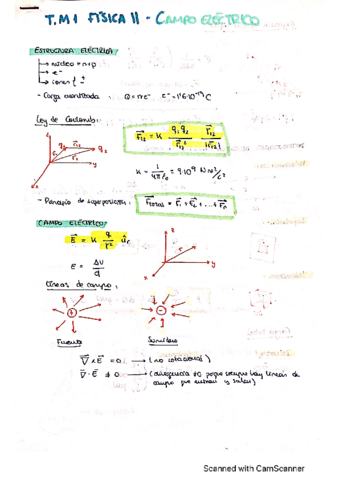 T.M 1 FÍSICA II - CAMPO ELÉCTRICO
ESTRUCTURA ELÉCTRICA
núcleo = n+p
e⁻
iones
- Carga cuantizada: Q = n·e⁻ e⁻ = 1'6·10⁻¹⁹ C
Ley de Coulomb:
F₁₂ = K q₁q₂/r₁₂² r₁₂/|r₁₂|
K = 1/4πε₀ = 9·10⁹ N·m²/C²
- Principio de superposición: F total = F₁ + F₂ + ... + Fₙ
CAMPO ELÉCTRICO
E = K q/r² ûᵣ
E = ΔV/d
Líneas de campo:
Fuente Sumidero
∇ × E = 0 → (no rotacional)
∇ · E ≠ 0 → (divergencia ≠0 porque siempre hay líneas de
campo que entran y salen)
Scanned with CamScanner